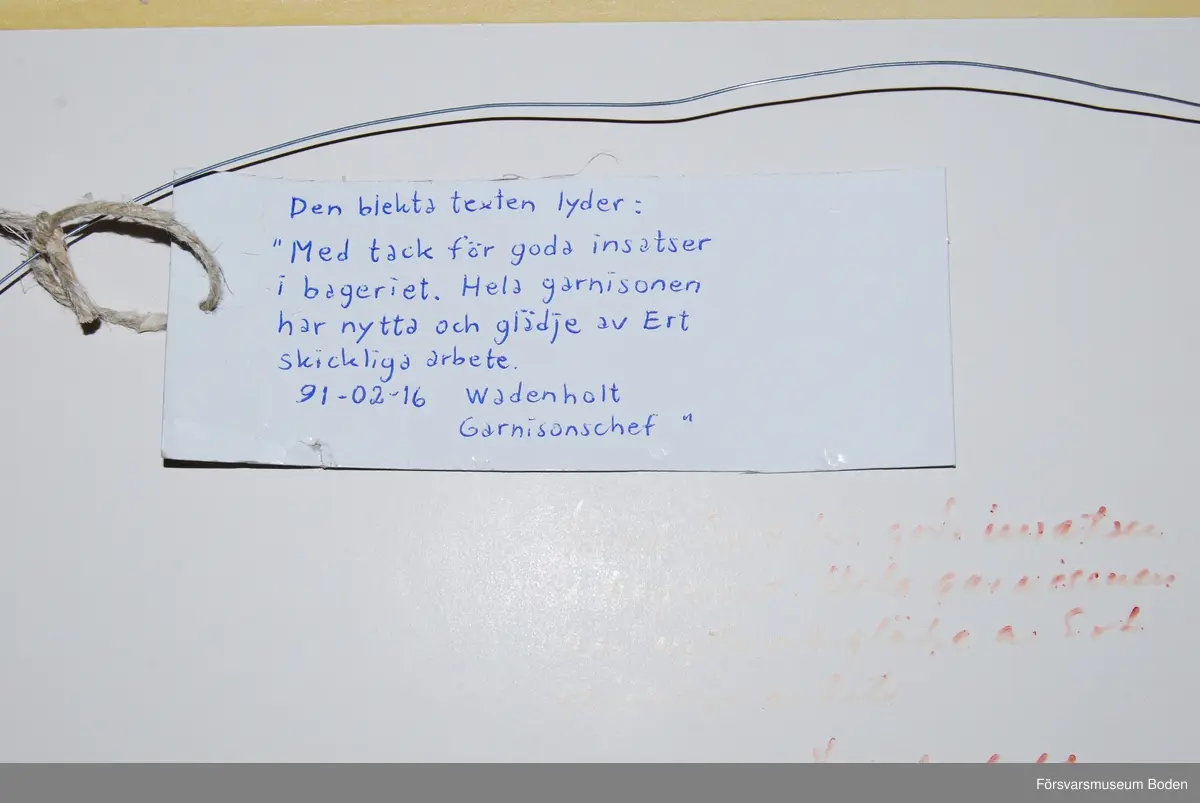 Den blekta texten lyder:
"Med tack för goda insatser
i bageriet. Hela garnisonen
har nytta och glädje av Ert
skickliga arbete.
91-02-16 Wadenholt
Garnisonschef "
insatser
Hela garnisonen
Ert
Försvarsmuseum Boden